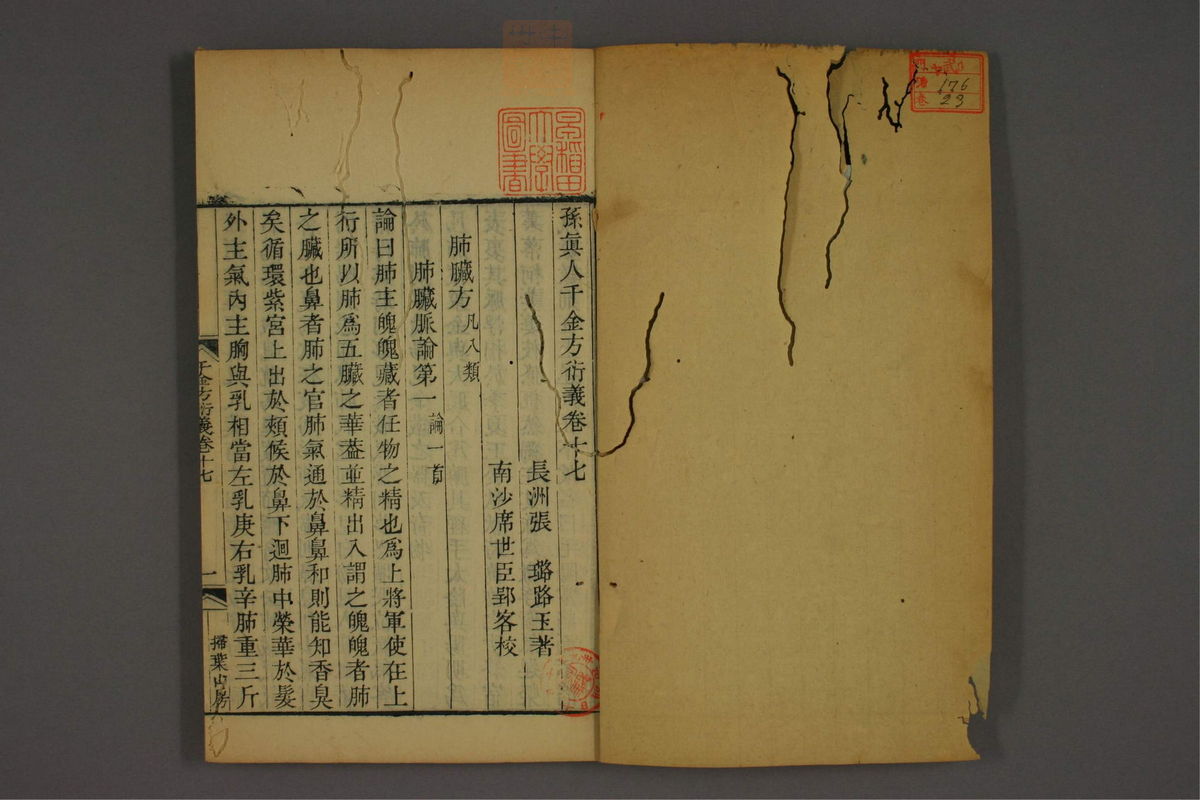 孫眞人千金方衍義卷十七
長洲張 璐路玉著
南沙席世臣郢客校
肺臟方凡八類
肺臟脈論第一論一首
論曰肺主魄魄藏者任物之精也爲上將軍使在上
行所以肺爲五臟之華葢並精出入謂之魄魄者肺
之臟也鼻者肺之官肺氣通於鼻鼻和則能知香臭
矣循環紫宮上出於頰候於鼻下迴肺中榮華於髮
外主氣內主胸與乳相當左乳庚右乳辛肺重三斤
千金方衍義卷十七
一
掃葉山房
早稻田
大學
圖書
176
23